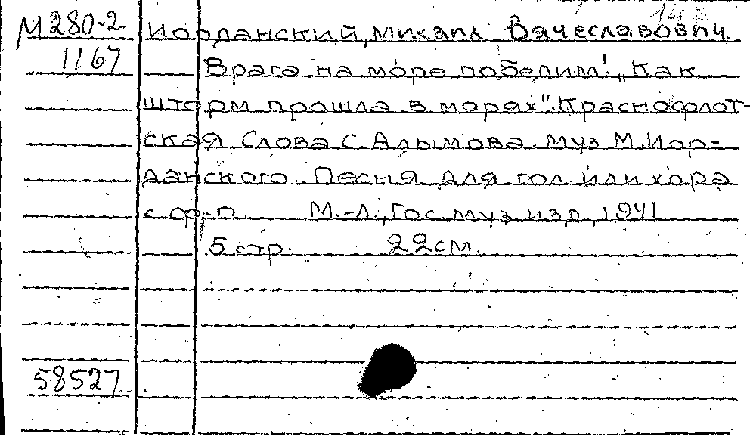 М280-2 Иорданский, Михаил Вячеславович.
1167 Врага на море победим! „Как
шторм прошла в морях". Краснофлот-
ская Слова С. Алымова муз М. Иор-
данского. Песня для гол. или хора
с ф-п. М.-Л., Гос. муз. изд., 1941
5 стр. 22см.
58527